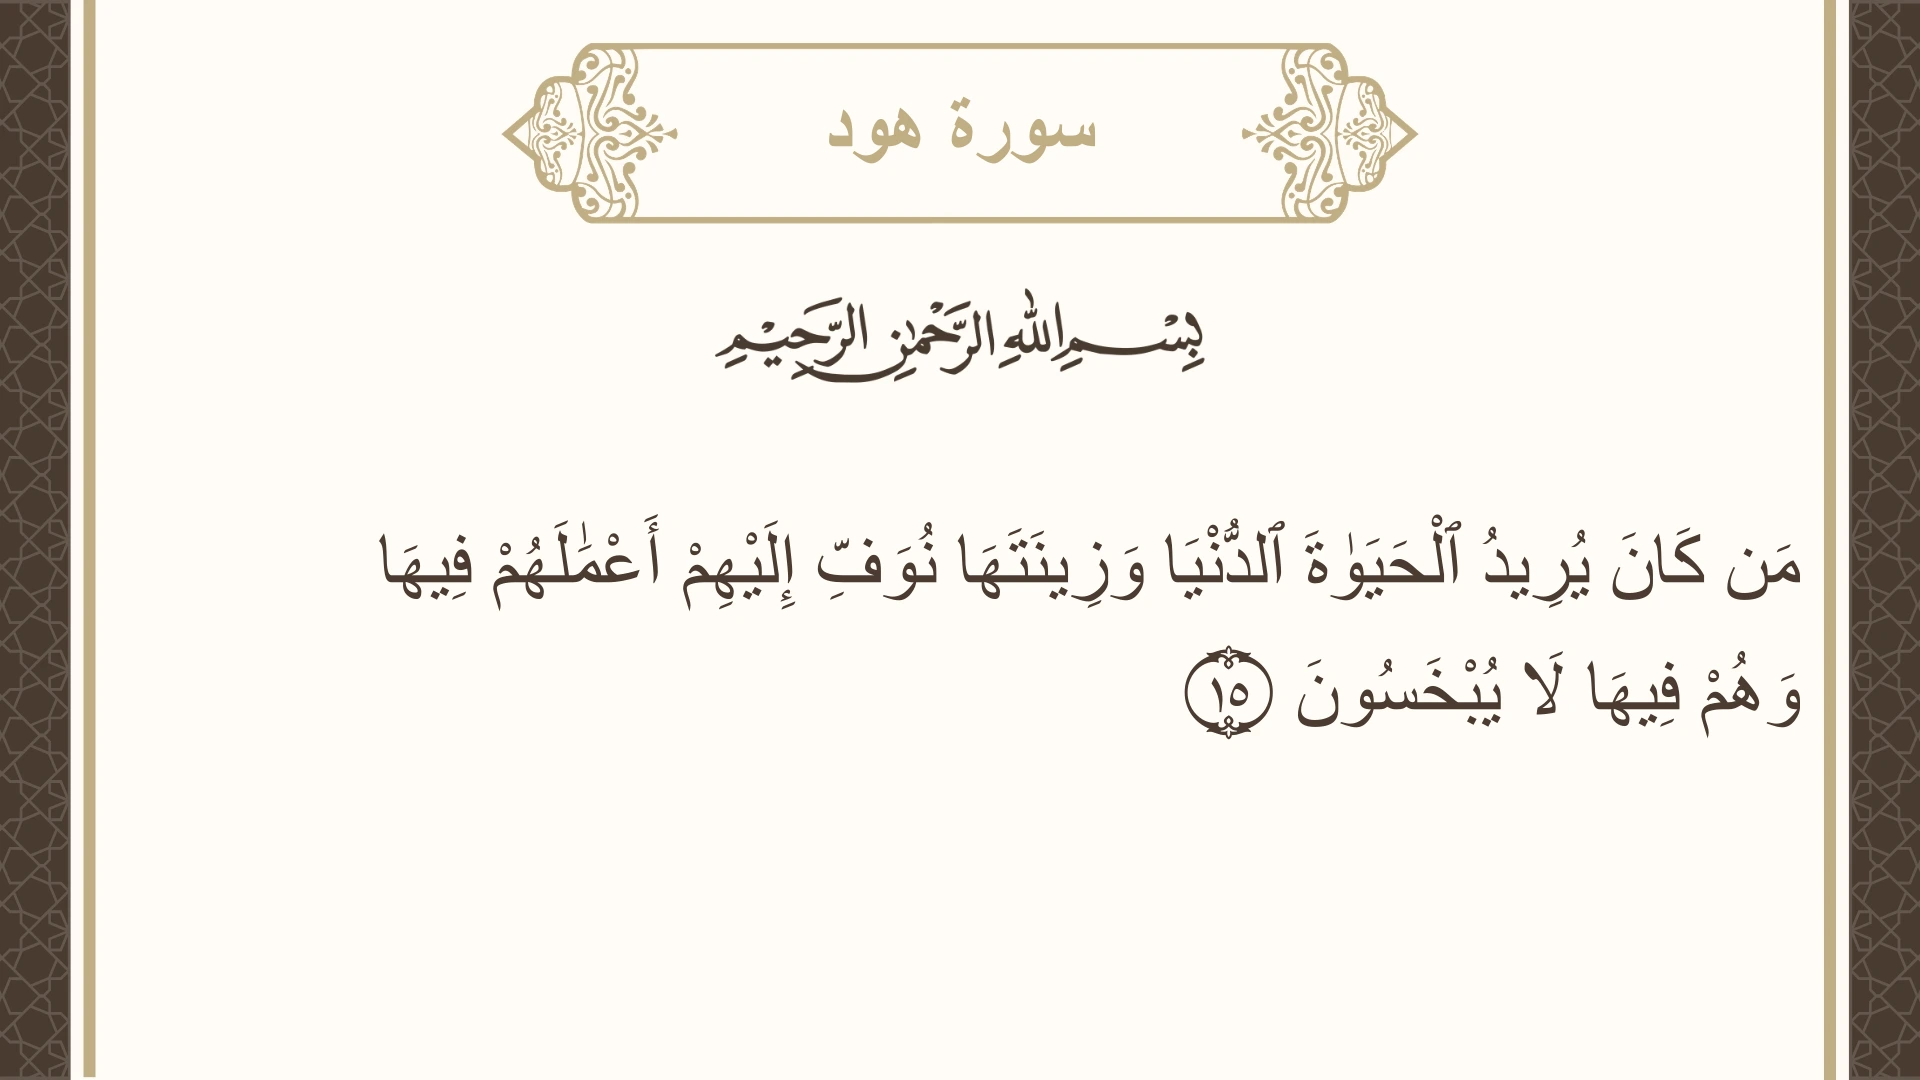 سورة هود
بِسْمِ اللهِ الرَّحْمٰنِ الرَّحِيْمِ
مَن كَانَ يُرِيدُ ٱلْحَيَوٰةَ ٱلدُّنْيَا وَزِينَتَهَا نُوَفِّ إِلَيْهِمْ أَعْمَـٰلَهُمْ فِيهَا
وَهُمْ فِيهَا لَا يُبْخَسُونَ ١٥